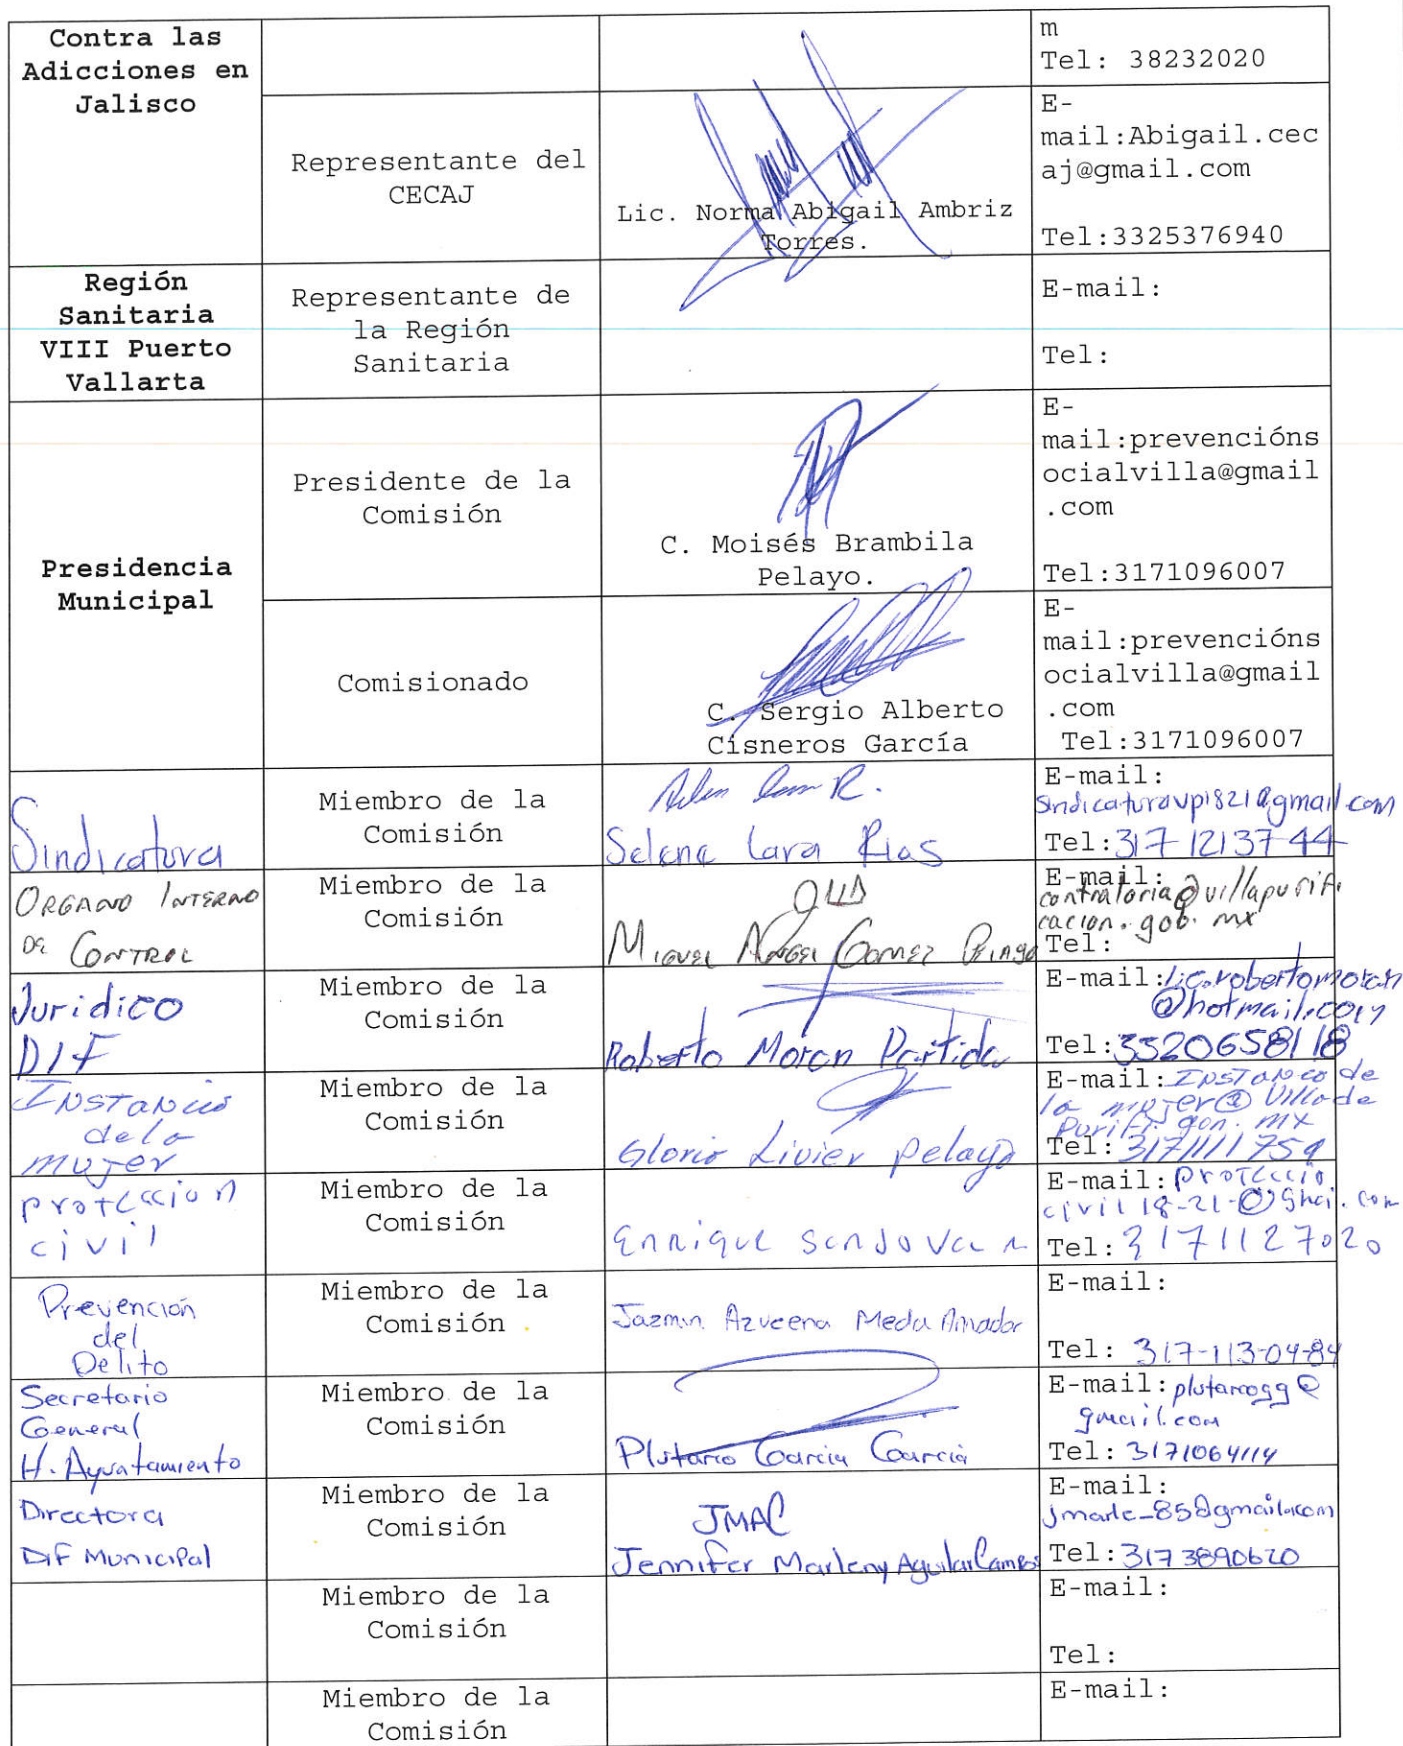 Contra las
Adicciones en
Jalisco
m
Tel: 38232020
Representante del
CECAJ
Lic. Norma Abigail Ambriz
Torres.
E-
mail:Abigail.cec
aj@gmail.com
Tel:3325376940
Región
Sanitaria
VIII Puerto
Vallarta
Representante de
la Región
Sanitaria
E-mail:
Tel:
Presidencia
Municipal
Presidente de la
Comisión
C. Moisés Brambila
Pelayo.
E-
mail:prevencións
ocialvilla@gmail
.com
Tel:3171096007
Comisionado
C. Sergio Alberto
Cisneros García
E-
mail:prevencións
ocialvilla@gmail
.com
Tel:3171096007
Sindicatura
Miembro de la
Comisión
Selene Lara Rios
E-mail:
sindicaturavp1821@gmail.com
Tel:317 1213744
ORGANO INTERNO
DE CONTROL
Miembro de la
Comisión
Miguel Angel Gomez
E-mail:
contraloria@villapurifi
cacion.gob.mx
Tel:
Juridico
DIF
Miembro de la
Comisión
Roberto Moran Partida
E-mail:lic.robertomoran
@hotmail.com
Tel:3320658118
Instancia
de la
mujer
Miembro de la
Comisión
Gloria Livier Pelayo
E-mail: Instancia de
la mujer@Villa de
Purifi.gon.mx
Tel: 3171111759
Proteccion
civil
Miembro de la
Comisión
Enrique Sandoval
E-mail: Proteccio
civil 18-21-@gmai.com
Tel: 3171127020
Prevención
del
Delito
Miembro de la
Comisión
Jazmin Azucena Meda Amador
E-mail:
Tel: 317-113-04-84
Secretario
General
H. Ayuntamiento
Miembro de la
Comisión
Plutarco Garcia Garcia
E-mail: plutarcogg@
gmail.com
Tel: 3171064114
Directora
DIF Municipal
Miembro de la
Comisión
JMAC
Jennifer Marleny Aguilar Campos
E-mail:
jmarle_85@gmail.com
Tel:3173890620
Miembro de la
Comisión
E-mail:
Tel:
Miembro de la
Comisión
E-mail: